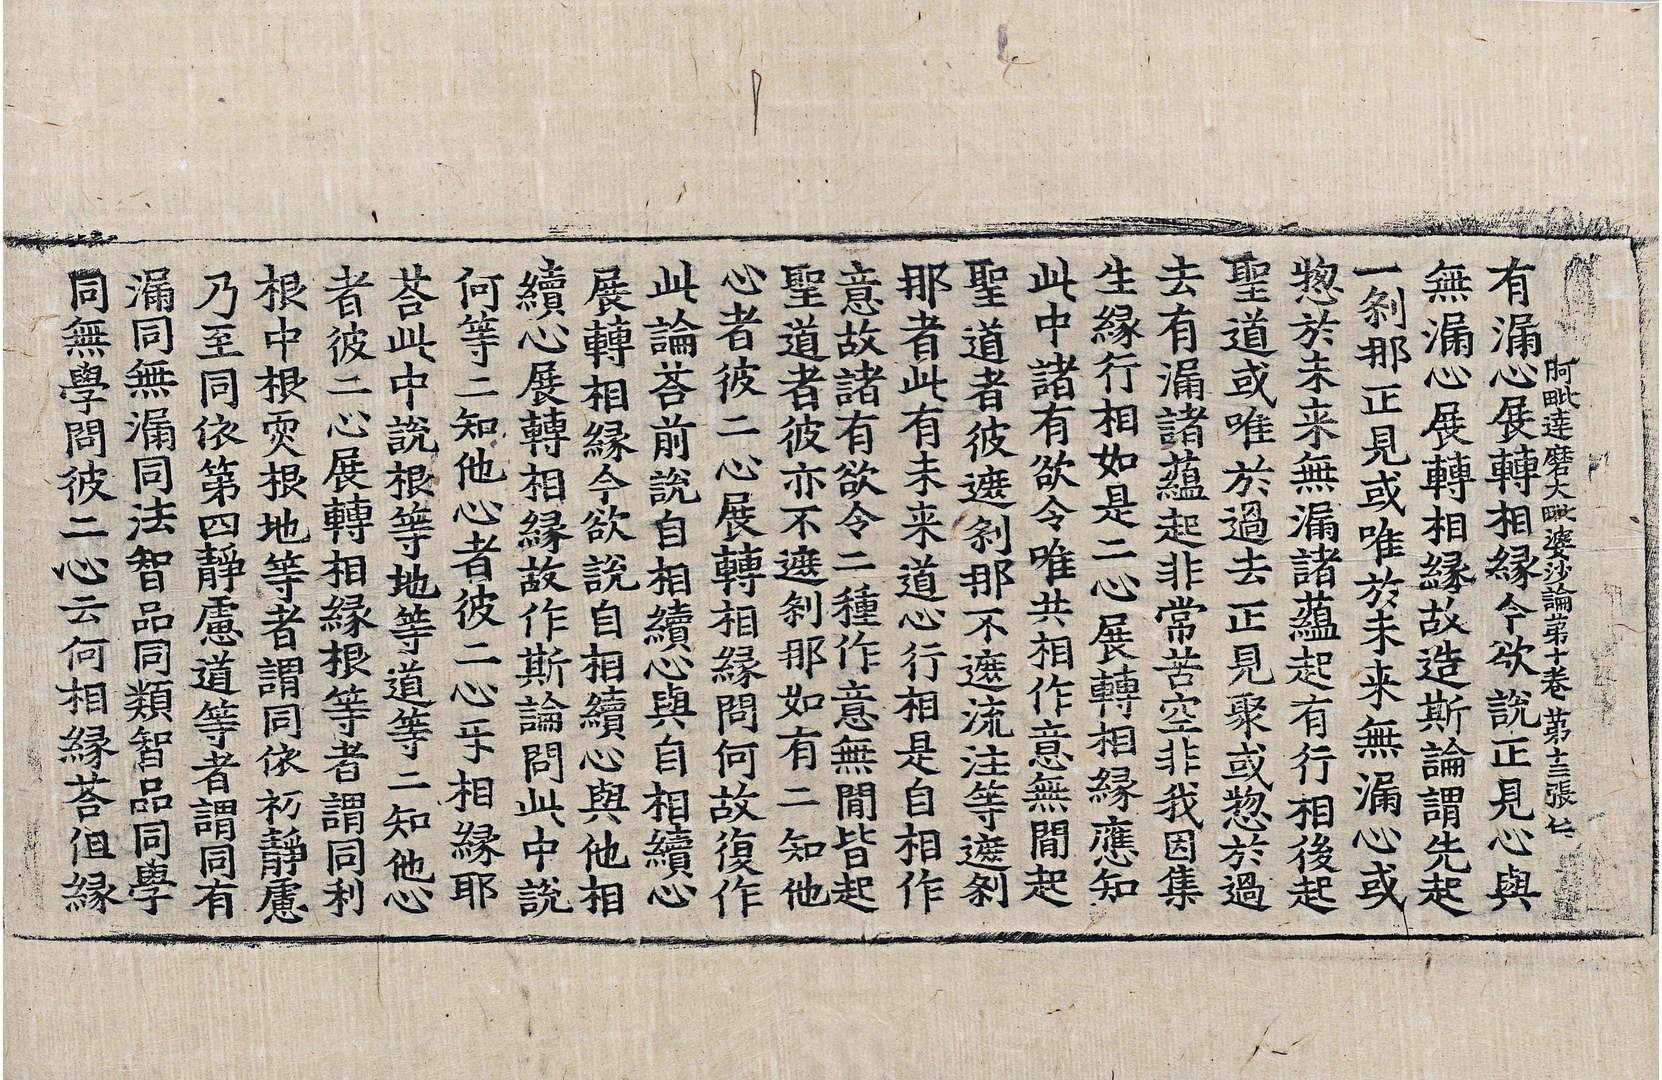 阿毗達磨大毗婆沙論第十卷 第十三張 仕
有漏心展轉相縁今欲說正見心與
無漏心展轉相縁故造斯論謂先起
一刹那正見或唯於未来無漏心或
惣於未来無漏諸蘊起有行相後起
聖道或唯於過去正見聚或惣於過
去有漏諸蘊起非常苦空非我因集
生縁行相如是二心展轉相縁應知
此中諸有欲令唯共相作意無閒起
聖道者彼遮刹那不遮流注等遮刹
那者此有未来道心行相是自相作
意故諸有欲令二種作意無閒皆起
聖道者彼亦不遮刹那如有二知他
心者彼二心展轉相縁問何故復作
此論荅前說自相續心與自相續心
展轉相縁今欲說自相續心與他相
續心展轉相縁故作斯論問此中說
何等二知他心者彼二心乎相縁耶
荅此中說根等地等道等二知他心
者彼二心展轉相縁根等者謂同利
根中根耎根地等者謂同依初靜慮
乃至同依第四靜慮道等者謂同有
漏同無漏同法智品同類智品同學
同無學問彼二心云何相縁荅但縁